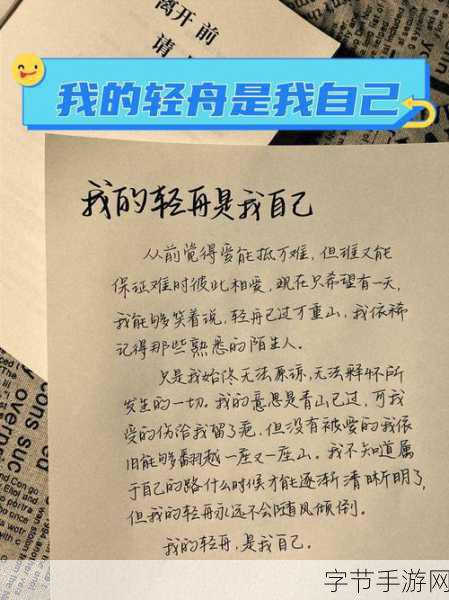 离开前
请
我的轻舟是我自己
我的轻舟是我自己
从前觉得爱能抵万难，但谁又能
保证难时彼此相爱，现在只希望有一天，
我能够笑着说，轻舟已过万重山，我依稀
记得那些熟悉的陌生人。
只是我始终无法原谅，无法释怀所
发生的一切。我的意思是青山已过，可我
受的伤治我留了疤，但没有被爱的我依
旧能够翻越一座又一座山。我不知道属
于自己的路什么时候才能逐渐清晰明了，
但我的轻舟永远不会随风倾倒。
我的轻舟，是我自己。
cons suc
字节手游网